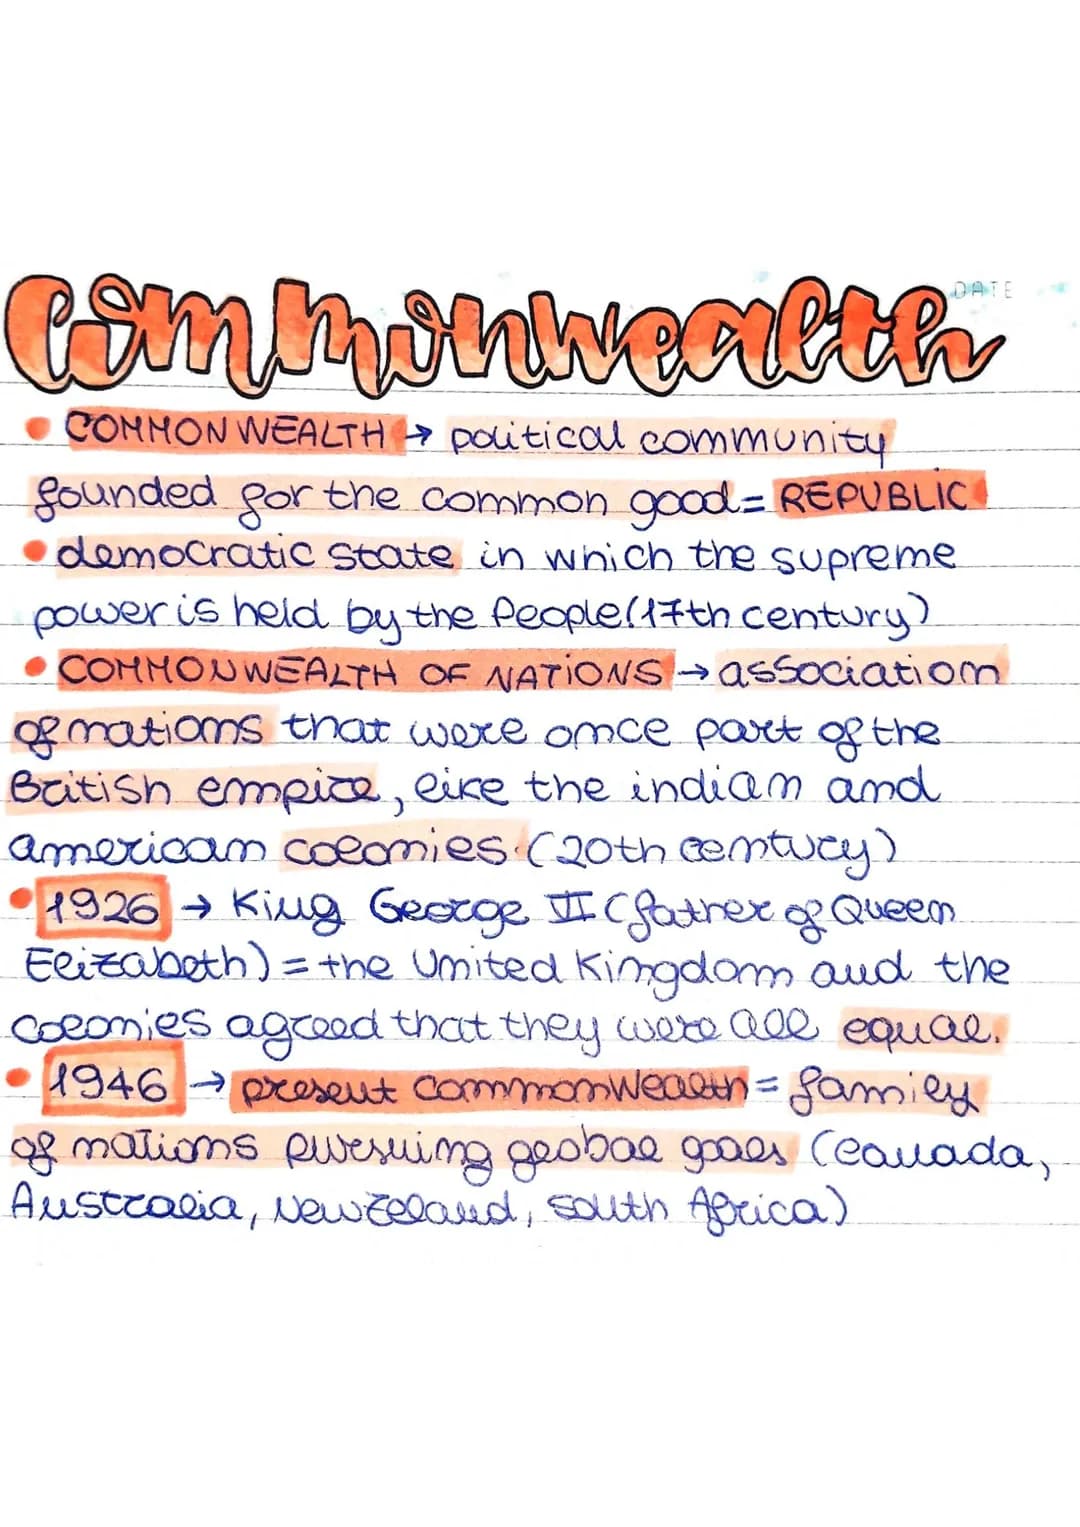 Commonwealth
DATE
• COMMONWEALTH → political community
founded for the common good = REPUBLIC
• democratic state in which the supreme
power is held by the people (17th century)
• COMMONWEALTH OF NATIONS → association
of nations that were once part of the
British empire, like the indian and
american colonies. (20th century)
• 1926 → King George II (father of Queen
Elizabeth) = the United Kingdom and the
colonies agreed that they were all equal.
• 1946 → present commonwealth = family
of nations pursuing global goals (Canada,
Australia, New Zeland, south Africa)